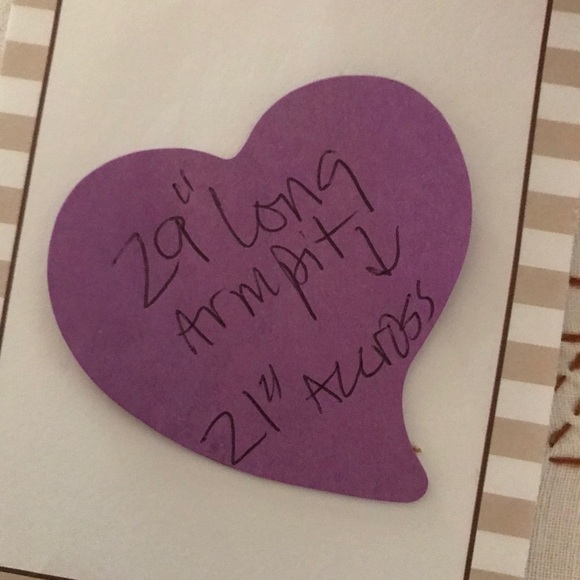 29" Long
Armpit ↓
21" Accross